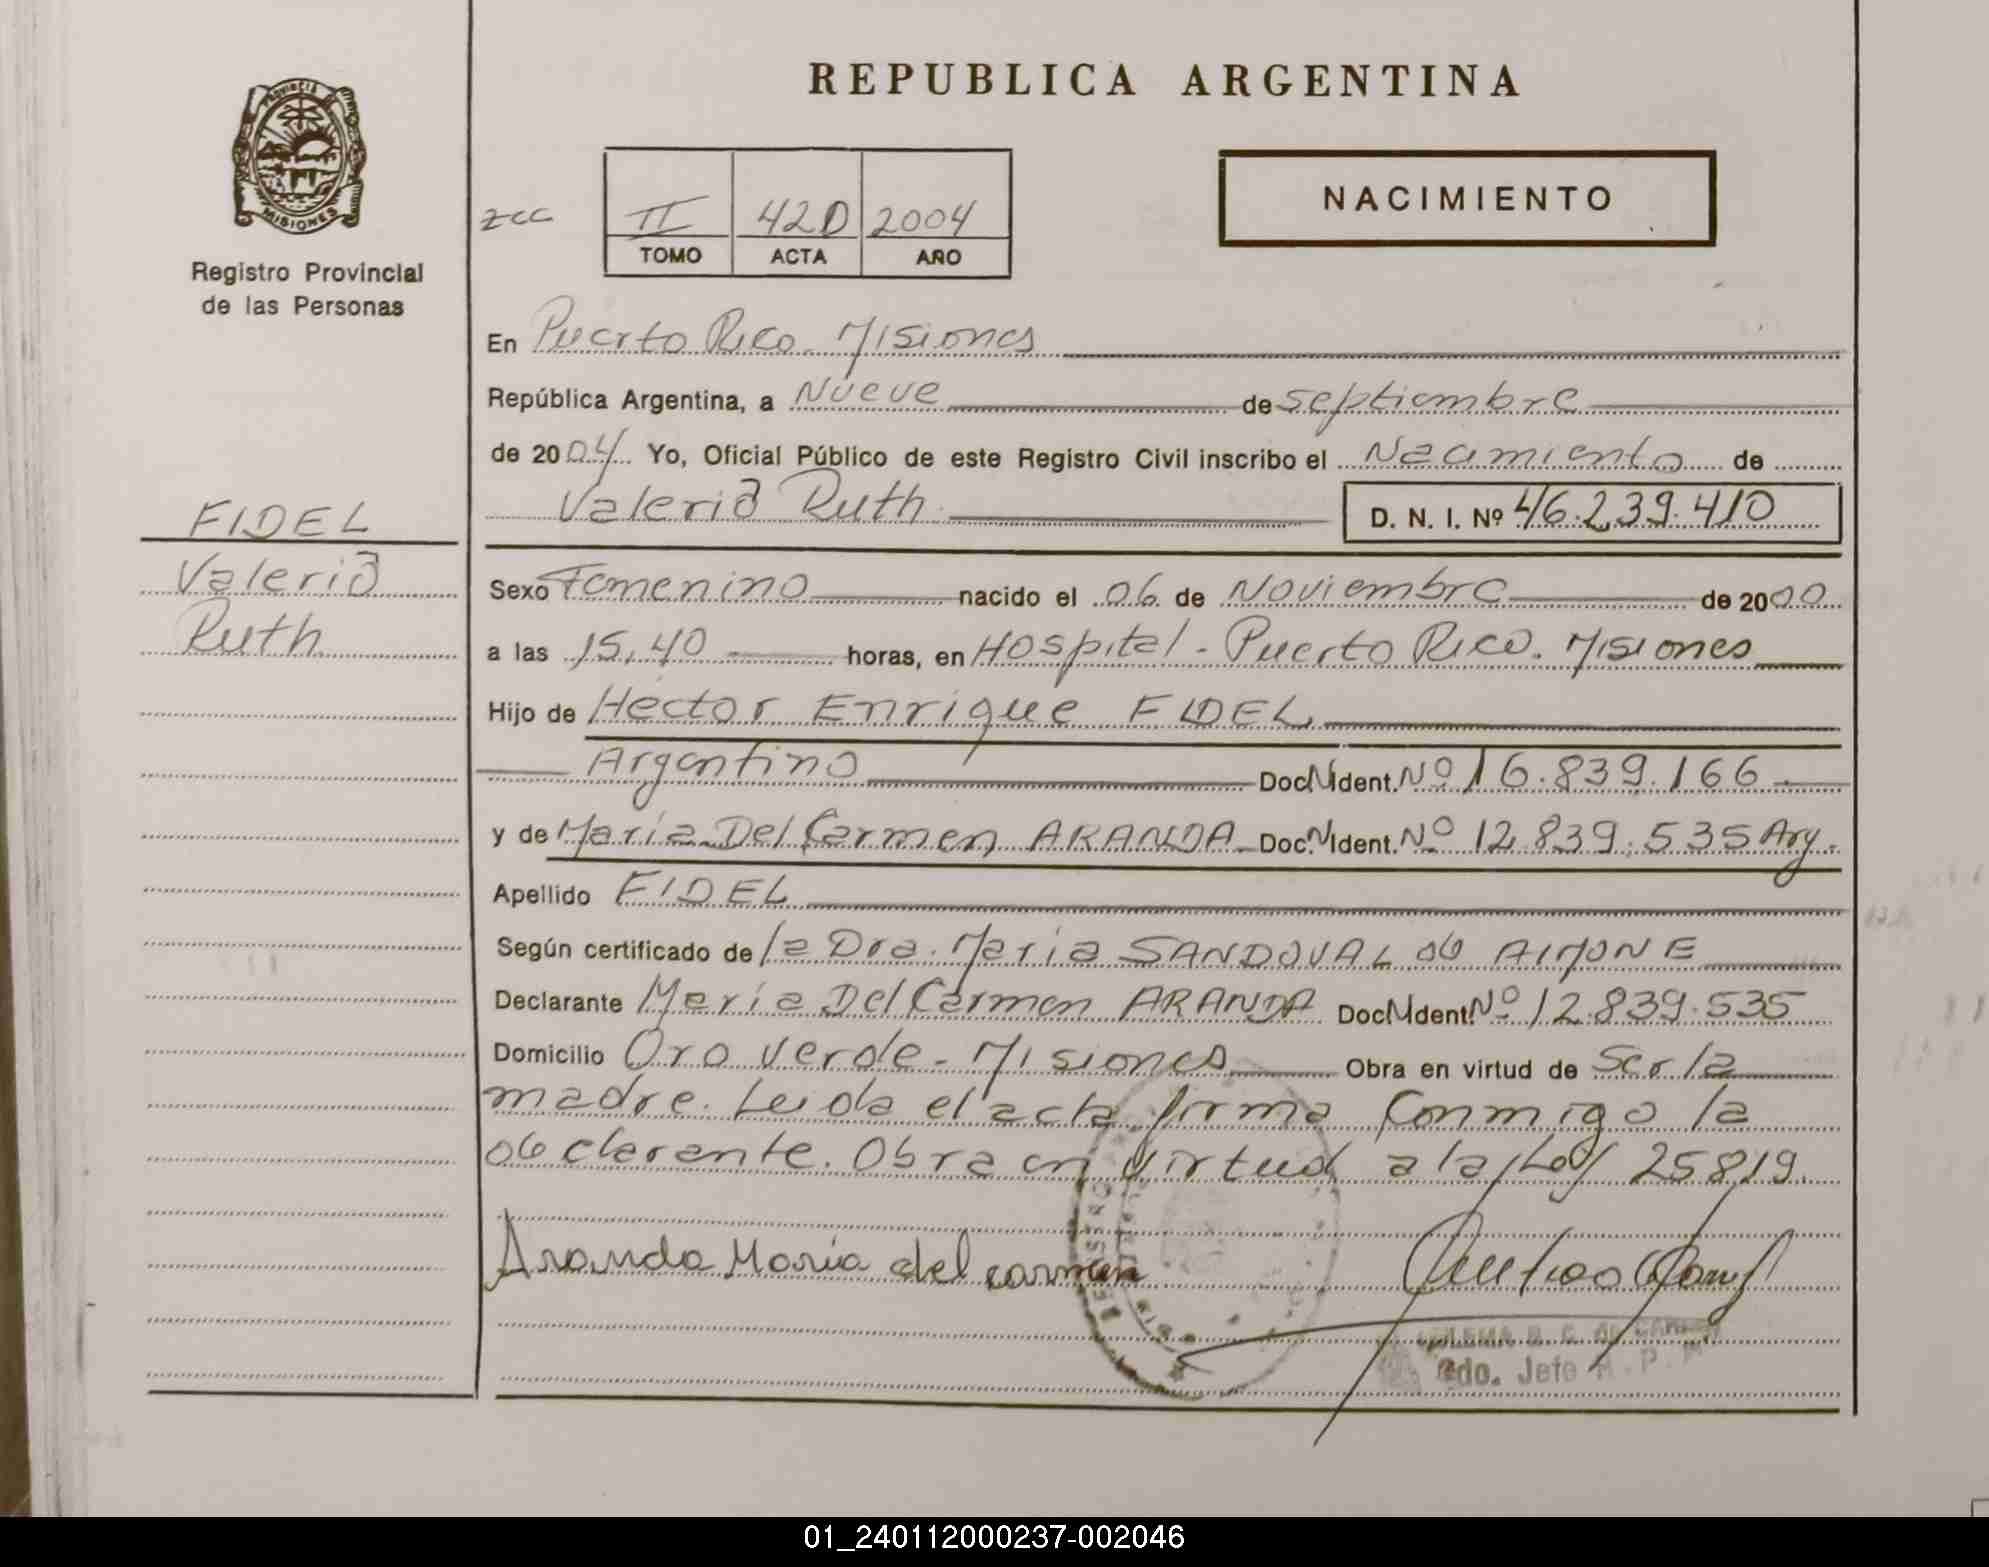 REPUBLICA ARGENTINA
PROVINCIA DE
MISIONES
Registro Provincial
de las Personas
zcc
II 42D 2004
TOMO ACTA AÑO
NACIMIENTO
En Puerto Rico. Misiones
República Argentina, a Nueve de septiembre
de 2004 Yo, Oficial Público de este Registro Civil inscribo el Nacimiento de
Valeria Ruth D. N. I. Nº 46.239.410
FIDEL
Valeria
Ruth
Sexo Femenino nacido el 06 de Noviembre de 2000
a las 15,40 horas, en Hospital - Puerto Rico. Misiones
Hijo de Hector Enrique FIDEL
Argentino Doc. N Ident. Nº 16.839.166
y de María Del Carmen ARANDA Doc. N Ident. Nº 12.839.535 Arg.
Apellido FIDEL
Según certificado de la Dra. María SANDOVAL de AIMONE
Declarante María Del Carmen ARANDA Doc. N Ident. Nº 12.839.535
Domicilio Oro Verde - Misiones Obra en virtud de Ser la
madre. Leida el acta firma Conmigo la
declarante. Obra en virtud a la Ley 25819.
Aranda María del carmen
Jefe
01_240112000237-002046